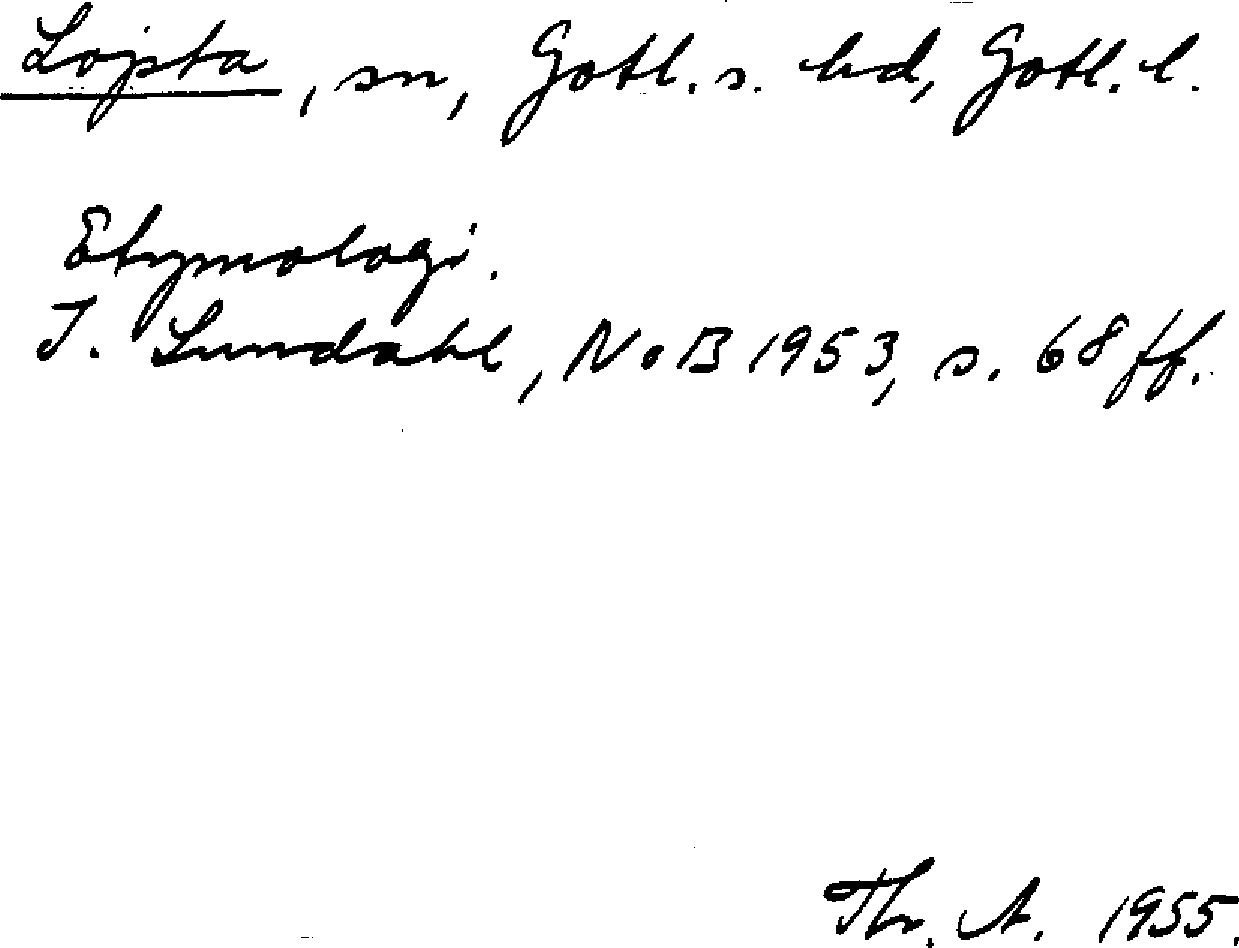 Lojsta, sn, Gotl. s. hd, Gotl. l.
Etymologi.
I. Lundahl, NoB 1953, s. 68 ff.
Thr. A. 1955.